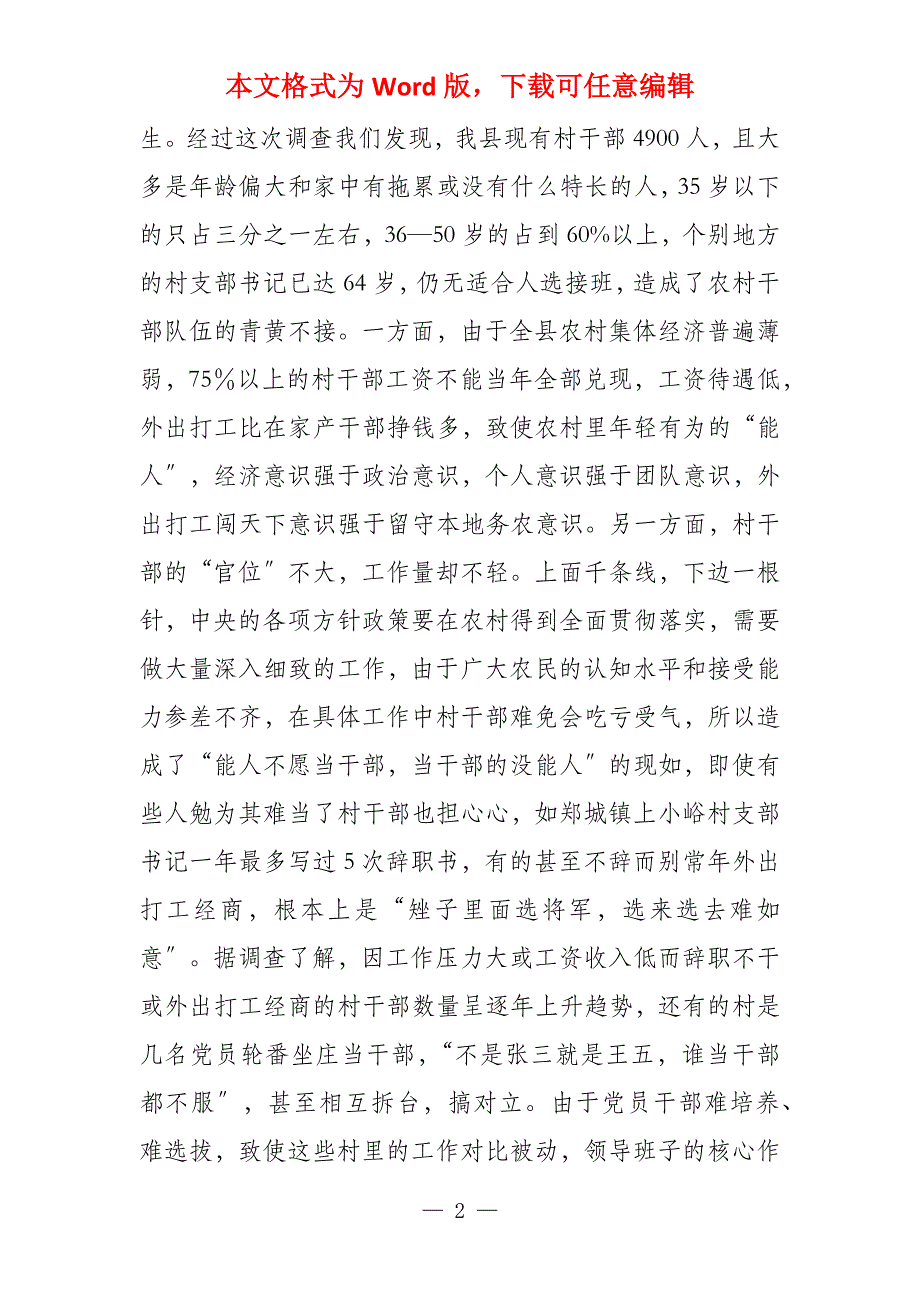 本文格式为 Word 版，下载可任意编辑
生。经过这次调查我们发现，我县现有村干部 4900 人，且大
多是年龄偏大和家中有拖累或没有什么特长的人，35 岁以下
的只占三分之一左右，36—50 岁的占到 60%以上，个别地方
的村支部书记已达 64 岁，仍无适合人选接班，造成了农村干
部队伍的青黄不接。一方面，由于全县农村集体经济普遍薄
弱，75％以上的村干部工资不能当年全部兑现，工资待遇低，
外出打工比在家产干部挣钱多，致使农村里年轻有为的“能
人〞，经济意识强于政治意识，个人意识强于团队意识，外
出打工闯天下意识强于留守本地务农意识。另一方面，村干
部的“官位〞不大，工作量却不轻。上面千条线，下边一根
针，中央的各项方针政策要在农村得到全面贯彻落实，需要
做大量深入细致的工作，由于广大农民的认知水平和接受能
力参差不齐，在具体工作中村干部难免会吃亏受气，所以造
成了“能人不愿当干部，当干部的没能人〞的现如，即使有
些人勉为其难当了村干部也担心心，如郑城镇上小峪村支部
书记一年最多写过 5 次辞职书，有的甚至不辞而别常年外出
打工经商，根本上是“矬子里面选将军，选来选去难如
意〞。据调查了解，因工作压力大或工资收入低而辞职不干
或外出打工经商的村干部数量呈逐年上升趋势，还有的村是
几名党员轮番坐庄当干部，“不是张三就是王五，谁当干部
都不服〞，甚至相互拆台，搞对立。由于党员干部难培养、
难选拔，致使这些村里的工作对比被动，领导班子的核心作
— 2 —